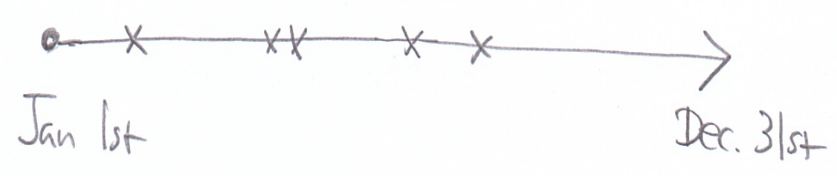 Jan 1st
Dec. 31st